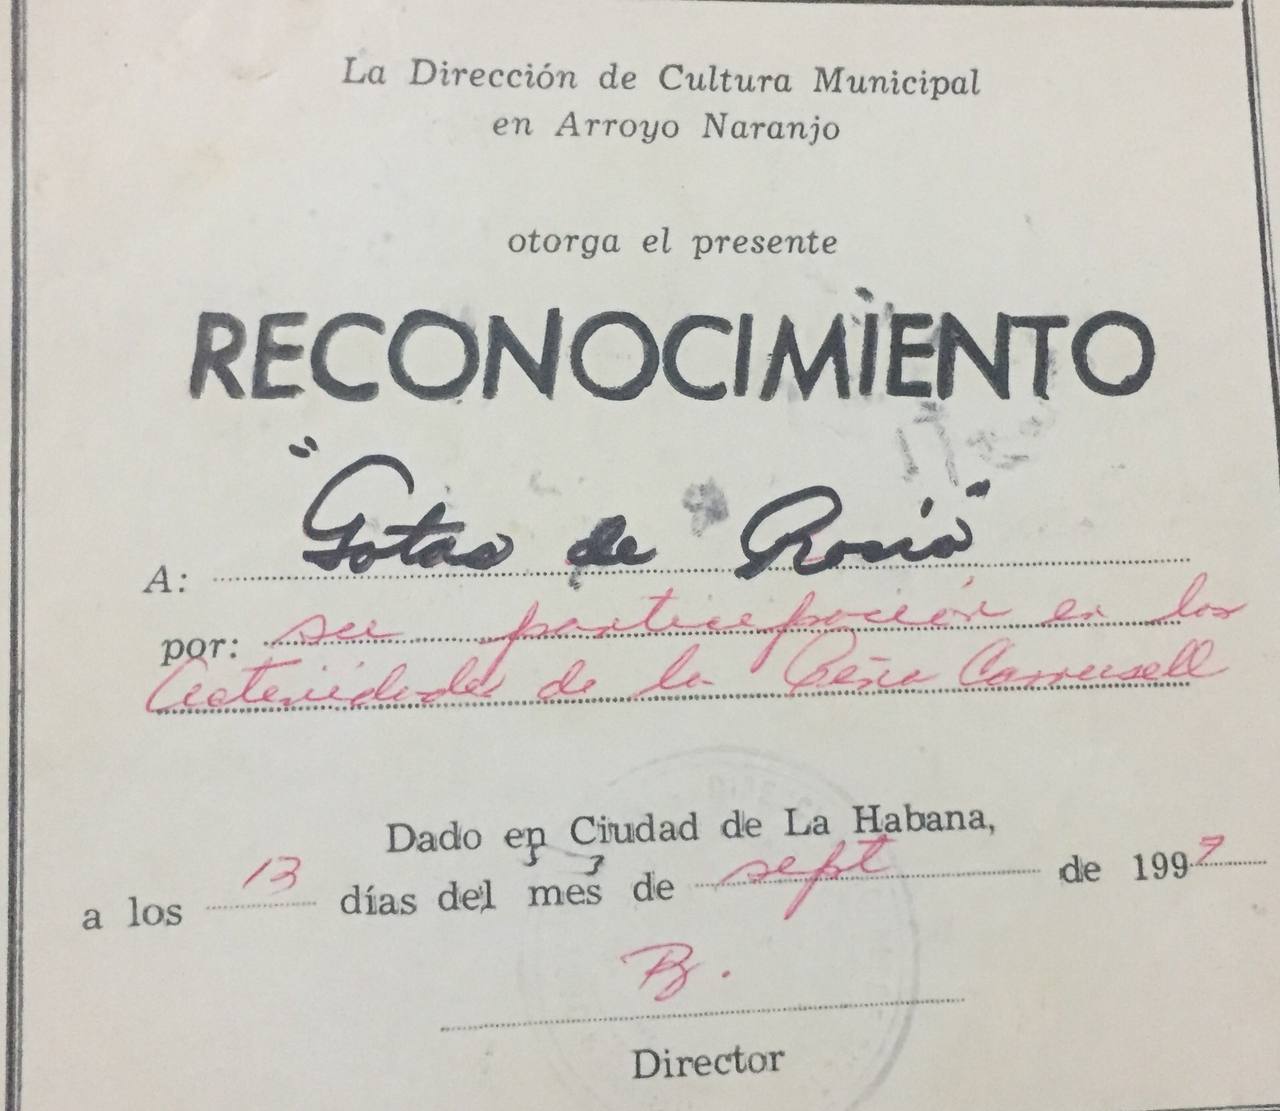 La Dirección de Cultura Municipal
en Arroyo Naranjo
otorga el presente
RECONOCIMIENTO
A: "Gotas de Rosió"
por: su participación en las
Actividades de la Peña Carrusell
Dado en Ciudad de La Habana,
a los 13 días del mes de sept de 1997
Director